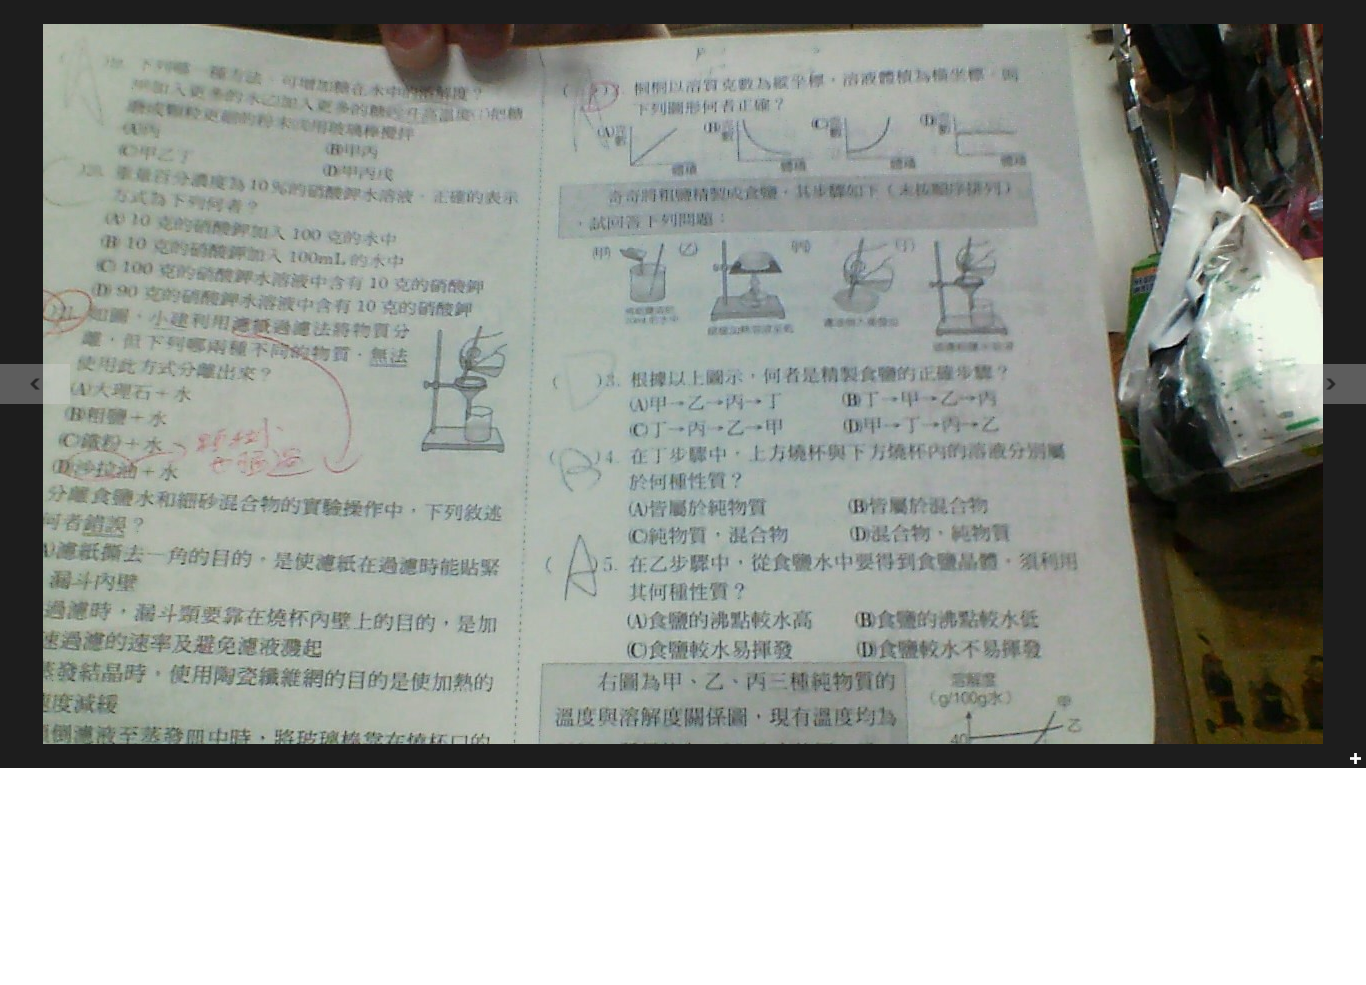 下列哪一種方法，可增加糖在水中的溶解度？
甲加入更多的水乙加入更多的糖丙升高溫度丁把糖
磨成顆粒更細的粉末戊用玻璃棒攪拌
(A)丙
(B)甲丙
(C)甲乙丁
(D)甲丙戊
)20. 重量百分濃度為10%的硝酸鉀水溶液，正確的表示
方式為下列何者？
(A) 10 克的硝酸鉀加入 100 克的水中
(B) 10 克的硝酸鉀加入 100mL 的水中
(C) 100 克的硝酸鉀水溶液中含有 10 克的硝酸鉀
(D) 90 克的硝酸鉀水溶液中含有 10 克的硝酸鉀
)21. 如圖，小建利用濾紙過濾法將物質分
離，但下列哪兩種不同的物質，無法
使用此方式分離出來？
(A)大理石＋水
(B)粗鹽＋水
(C)鐵粉＋水
(D)沙拉油＋水
分離食鹽水和細砂混合物的實驗操作中，下列敘述
何者錯誤？
A)濾紙撕去一角的目的，是使濾紙在過濾時能貼緊
漏斗內壁
過濾時，漏斗頸要靠在燒杯內壁上的目的，是加
速過濾的速率及避免濾液濺起
蒸發結晶時，使用陶瓷纖維網的目的是使加熱的
速度減緩
傾倒濾液至蒸發皿中時，將玻璃棒靠在燒杯口的
A
( )2. 桐桐以溶質克數為縱坐標，溶液體積為橫坐標，則
下列圖形何者正確？
(A)克數 體積
(B)克數 體積
(C)克數 體積
(D)克數 體積
奇奇將粗鹽精製成食鹽，其步驟如下（未按順序排列）
，試回答下列問題：
(甲) (乙) (丙) (丁)
( D )3. 根據以上圖示，何者是精製食鹽的正確步驟？
(A)甲→乙→丙→丁
(B)丁→甲→乙→丙
(C)丁→丙→乙→甲
(D)甲→丁→丙→乙
( B )4. 在丁步驟中，上方燒杯與下方燒杯內的溶液分別屬
於何種性質？
(A)皆屬於純物質
(B)皆屬於混合物
(C)純物質，混合物
(D)混合物，純物質
( A )5. 在乙步驟中，從食鹽水中要得到食鹽晶體，須利用
其何種性質？
(A)食鹽的沸點較水高
(B)食鹽的沸點較水低
(C)食鹽較水易揮發
(D)食鹽較水不易揮發
右圖為甲、乙、丙三種純物質的
溫度與溶解度關係圖，現有溫度均為
溶解度
（g/100g水）
甲
乙
40